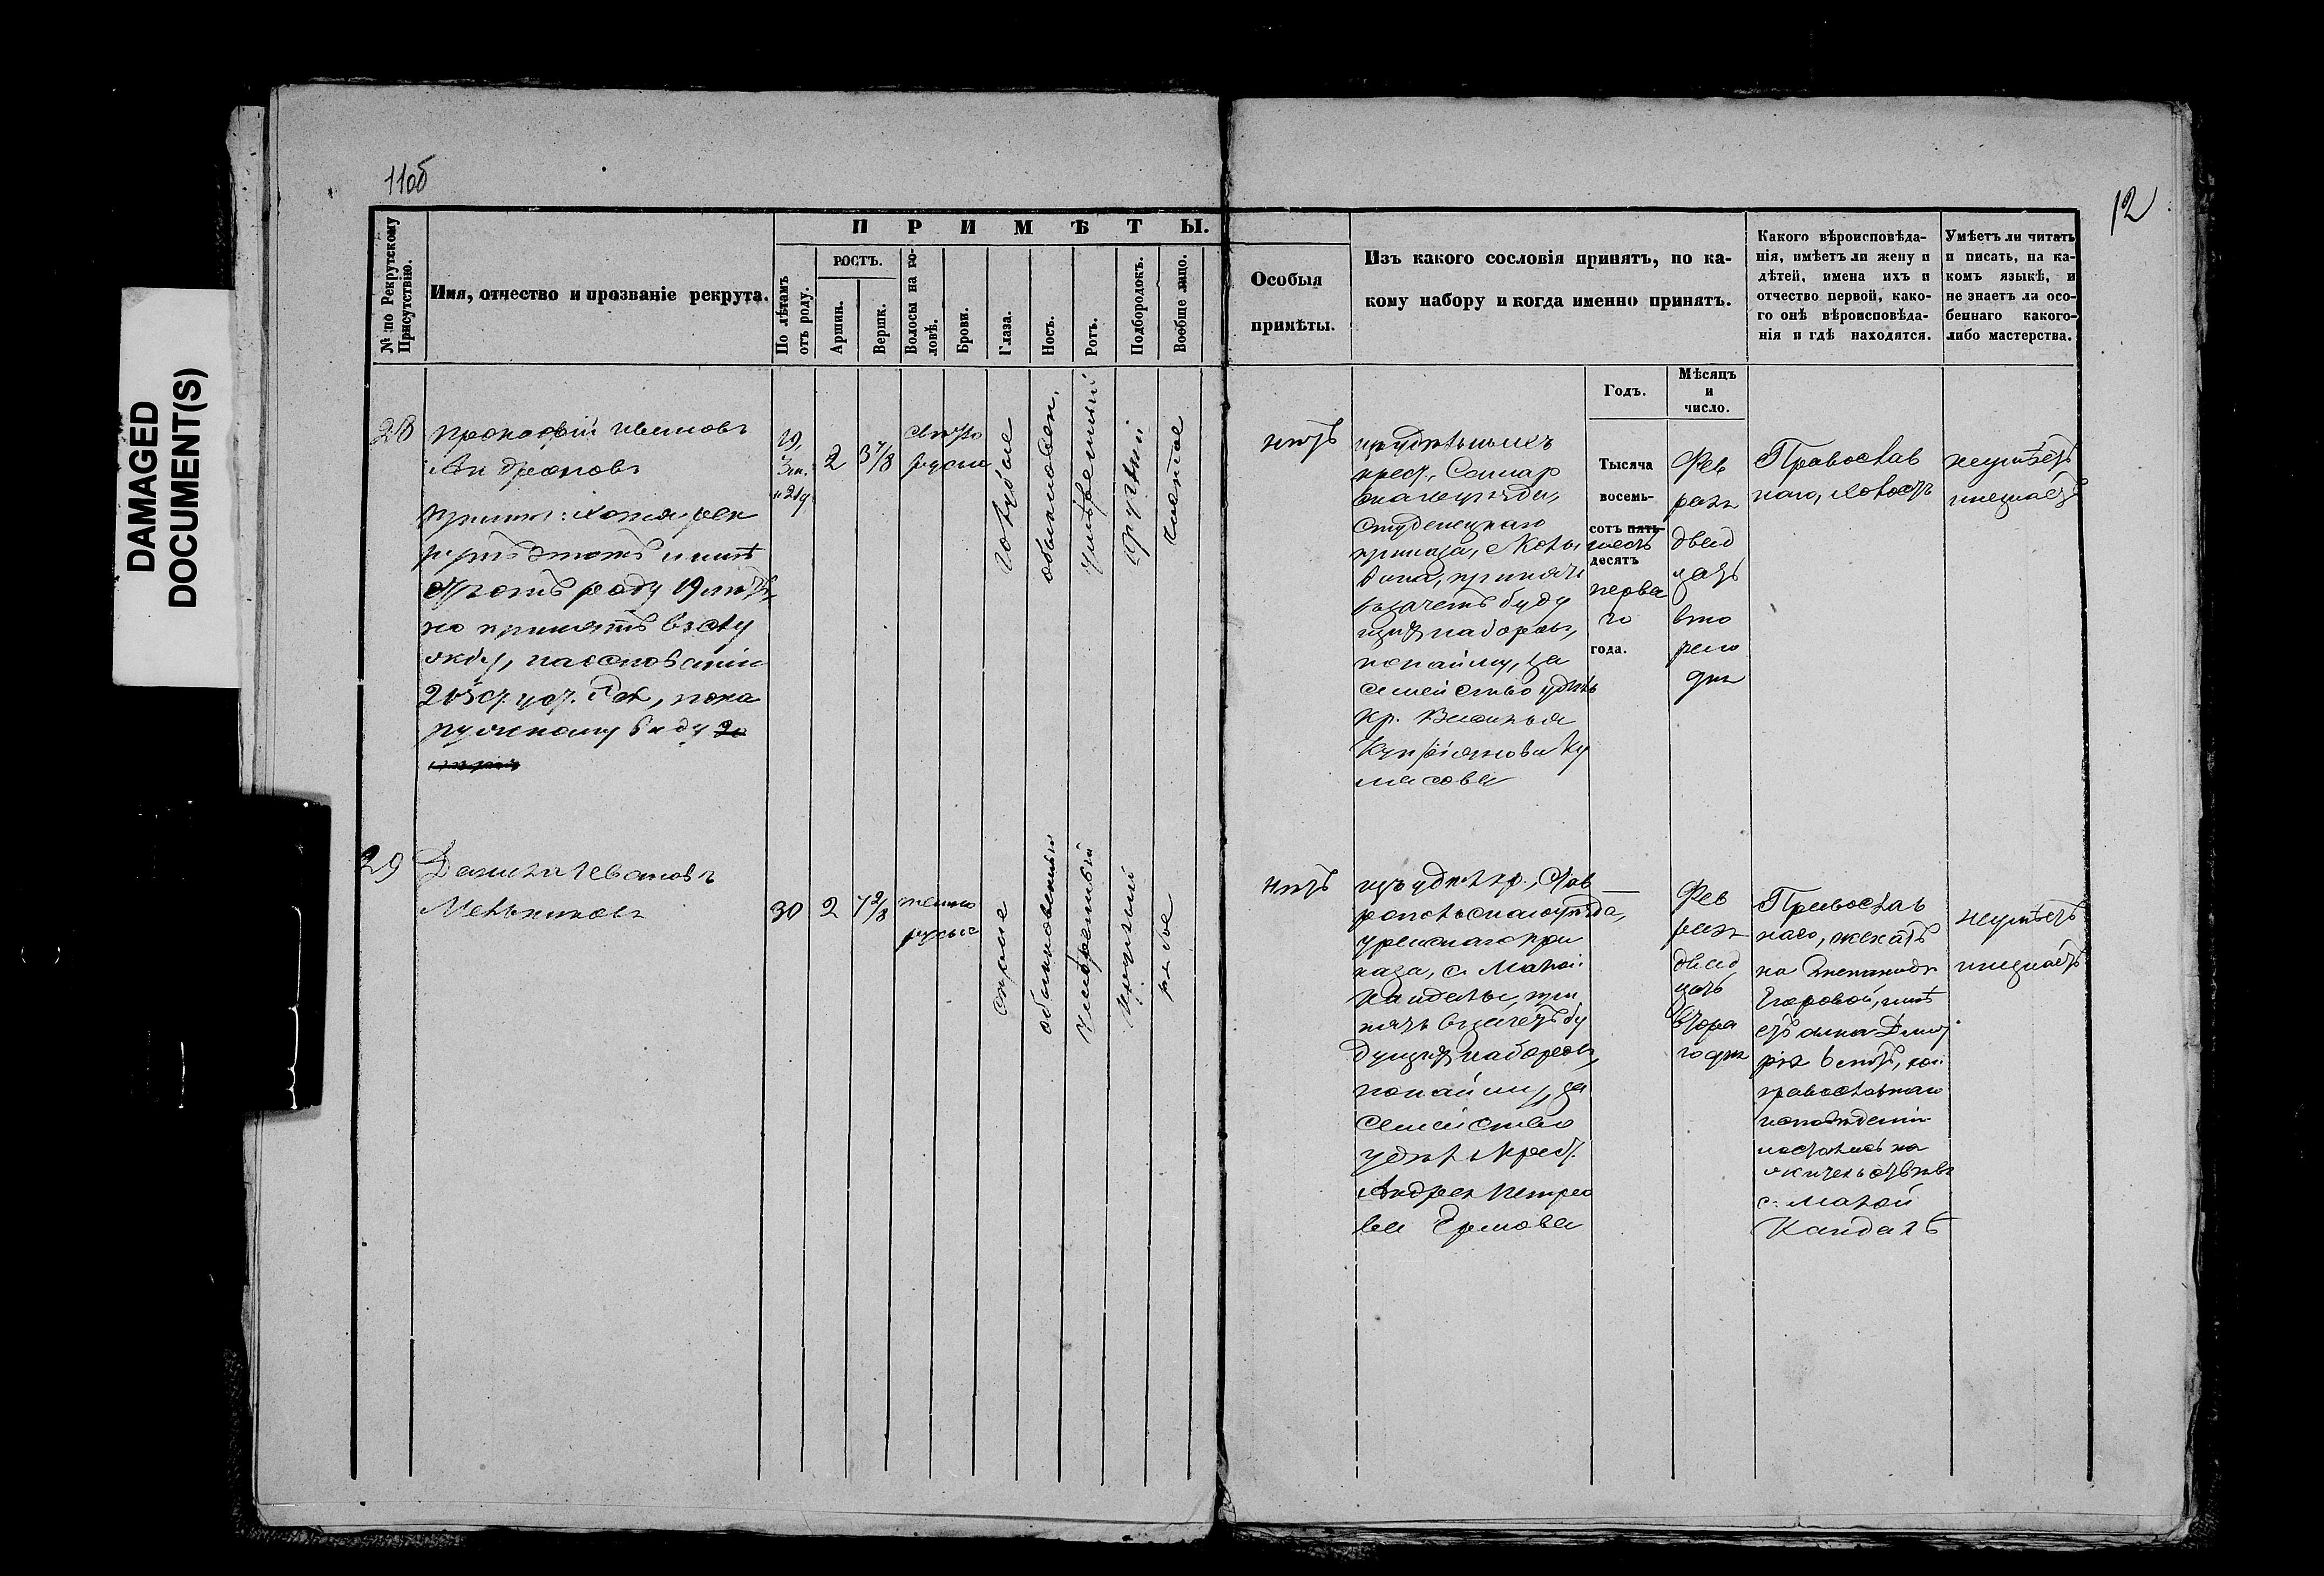 DAMAGED
DOCUMENT(S)
11об
12
№ по Рекрутскому
Присутствію.
Имя, отчество и прозваніе рекрута.
ПРИМѢТЫ.
По лѣтамъ
отъ роду.
РОСТЪ.
Аршин.
Вершк.
Волосы на го-
ловѣ.
Брови.
Глаза.
Носъ.
Ротъ.
Подбородокъ.
Вообще лицо.
Особыя
примѣты.
Изъ какого сословія принятъ, по ка-
кому набору и когда именно принятъ.
Какого вѣроисповѣда-
нія, имѣетъ ли жену и
дѣтей, имена ихъ и
отчество первой, како-
го онѣ вѣроисповѣда-
нія и гдѣ находятся.
Умѣетъ ли читать
и писать, на ка-
комъ языкѣ, и
не знаетъ ли осо-
беннаго какого-
либо мастерства.
Годъ.
Мѣсяцъ
и
число.
28
Прокофій Ивановъ
Андреяновъ
Примѣ: Хотя рек
рутъ этотъ имѣ
етъ отъ роду 19 лѣтъ,
но принятъ въ слу
жбу, на основаніи
уст. Рек., по на
ружному виду
19
2
3 7/8
свѣтло
русые
голубые
обыкновен.
умѣренный
круглый
чистое
нѣтъ
изъ удѣльныхъ
крест., Самар
скаго уѣзда,
Студенецкаго
приказа, с.
принятъ
въ зачетъ буду
щихъ наборовъ,
по найму, за
семейство удѣль
кр. Василья
Купріянова Ку
масова
Тысяча
восемь-
сотъ пять
шесть
десятъ
перва
го
года.
Фев
раля
двад
цать
вто
раго
дня
Православ
наго, холостъ
неумѣетъ
инезнаетъ
29
Данила Ивановъ
Мельниковъ
30
2
7 2/8
темно
русые
сѣрые
обыкновенный
умѣренный
круглый
рябое
нѣтъ
изъ удѣл кр., Став
ропольскаго уѣзда,
при
каза, с. Малой
Кандалы, при
нятъ въ зачетъ бу
дущихъ наборовъ,
по найму, за
семейство
удѣл. крест.
Андрея Петро
ва Ермова
Фев
раля
двад
цать
втора
го дня
Православ
наго, женатъ
на
Егоровой, имѣ
етъ сына Дмит
рія 6 лѣтъ, кои
православнаго
исповѣданія
остались на
жительствѣ въ
с. Малой
Кандалѣ
неумѣетъ
инезнаетъ